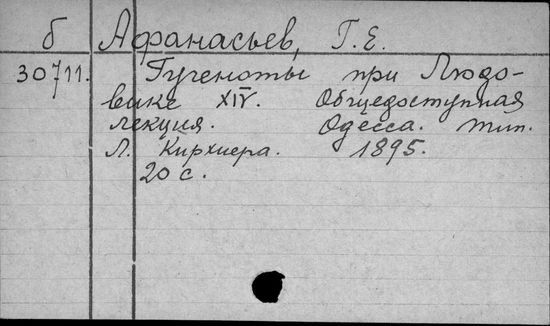 б Афанасьев, Г. Е.
30711. Гугеноты при Людо-
вике XIV. Общедоступная
лекция. Одесса. тип.
Л. Кирхнера. 1895.
20 с.